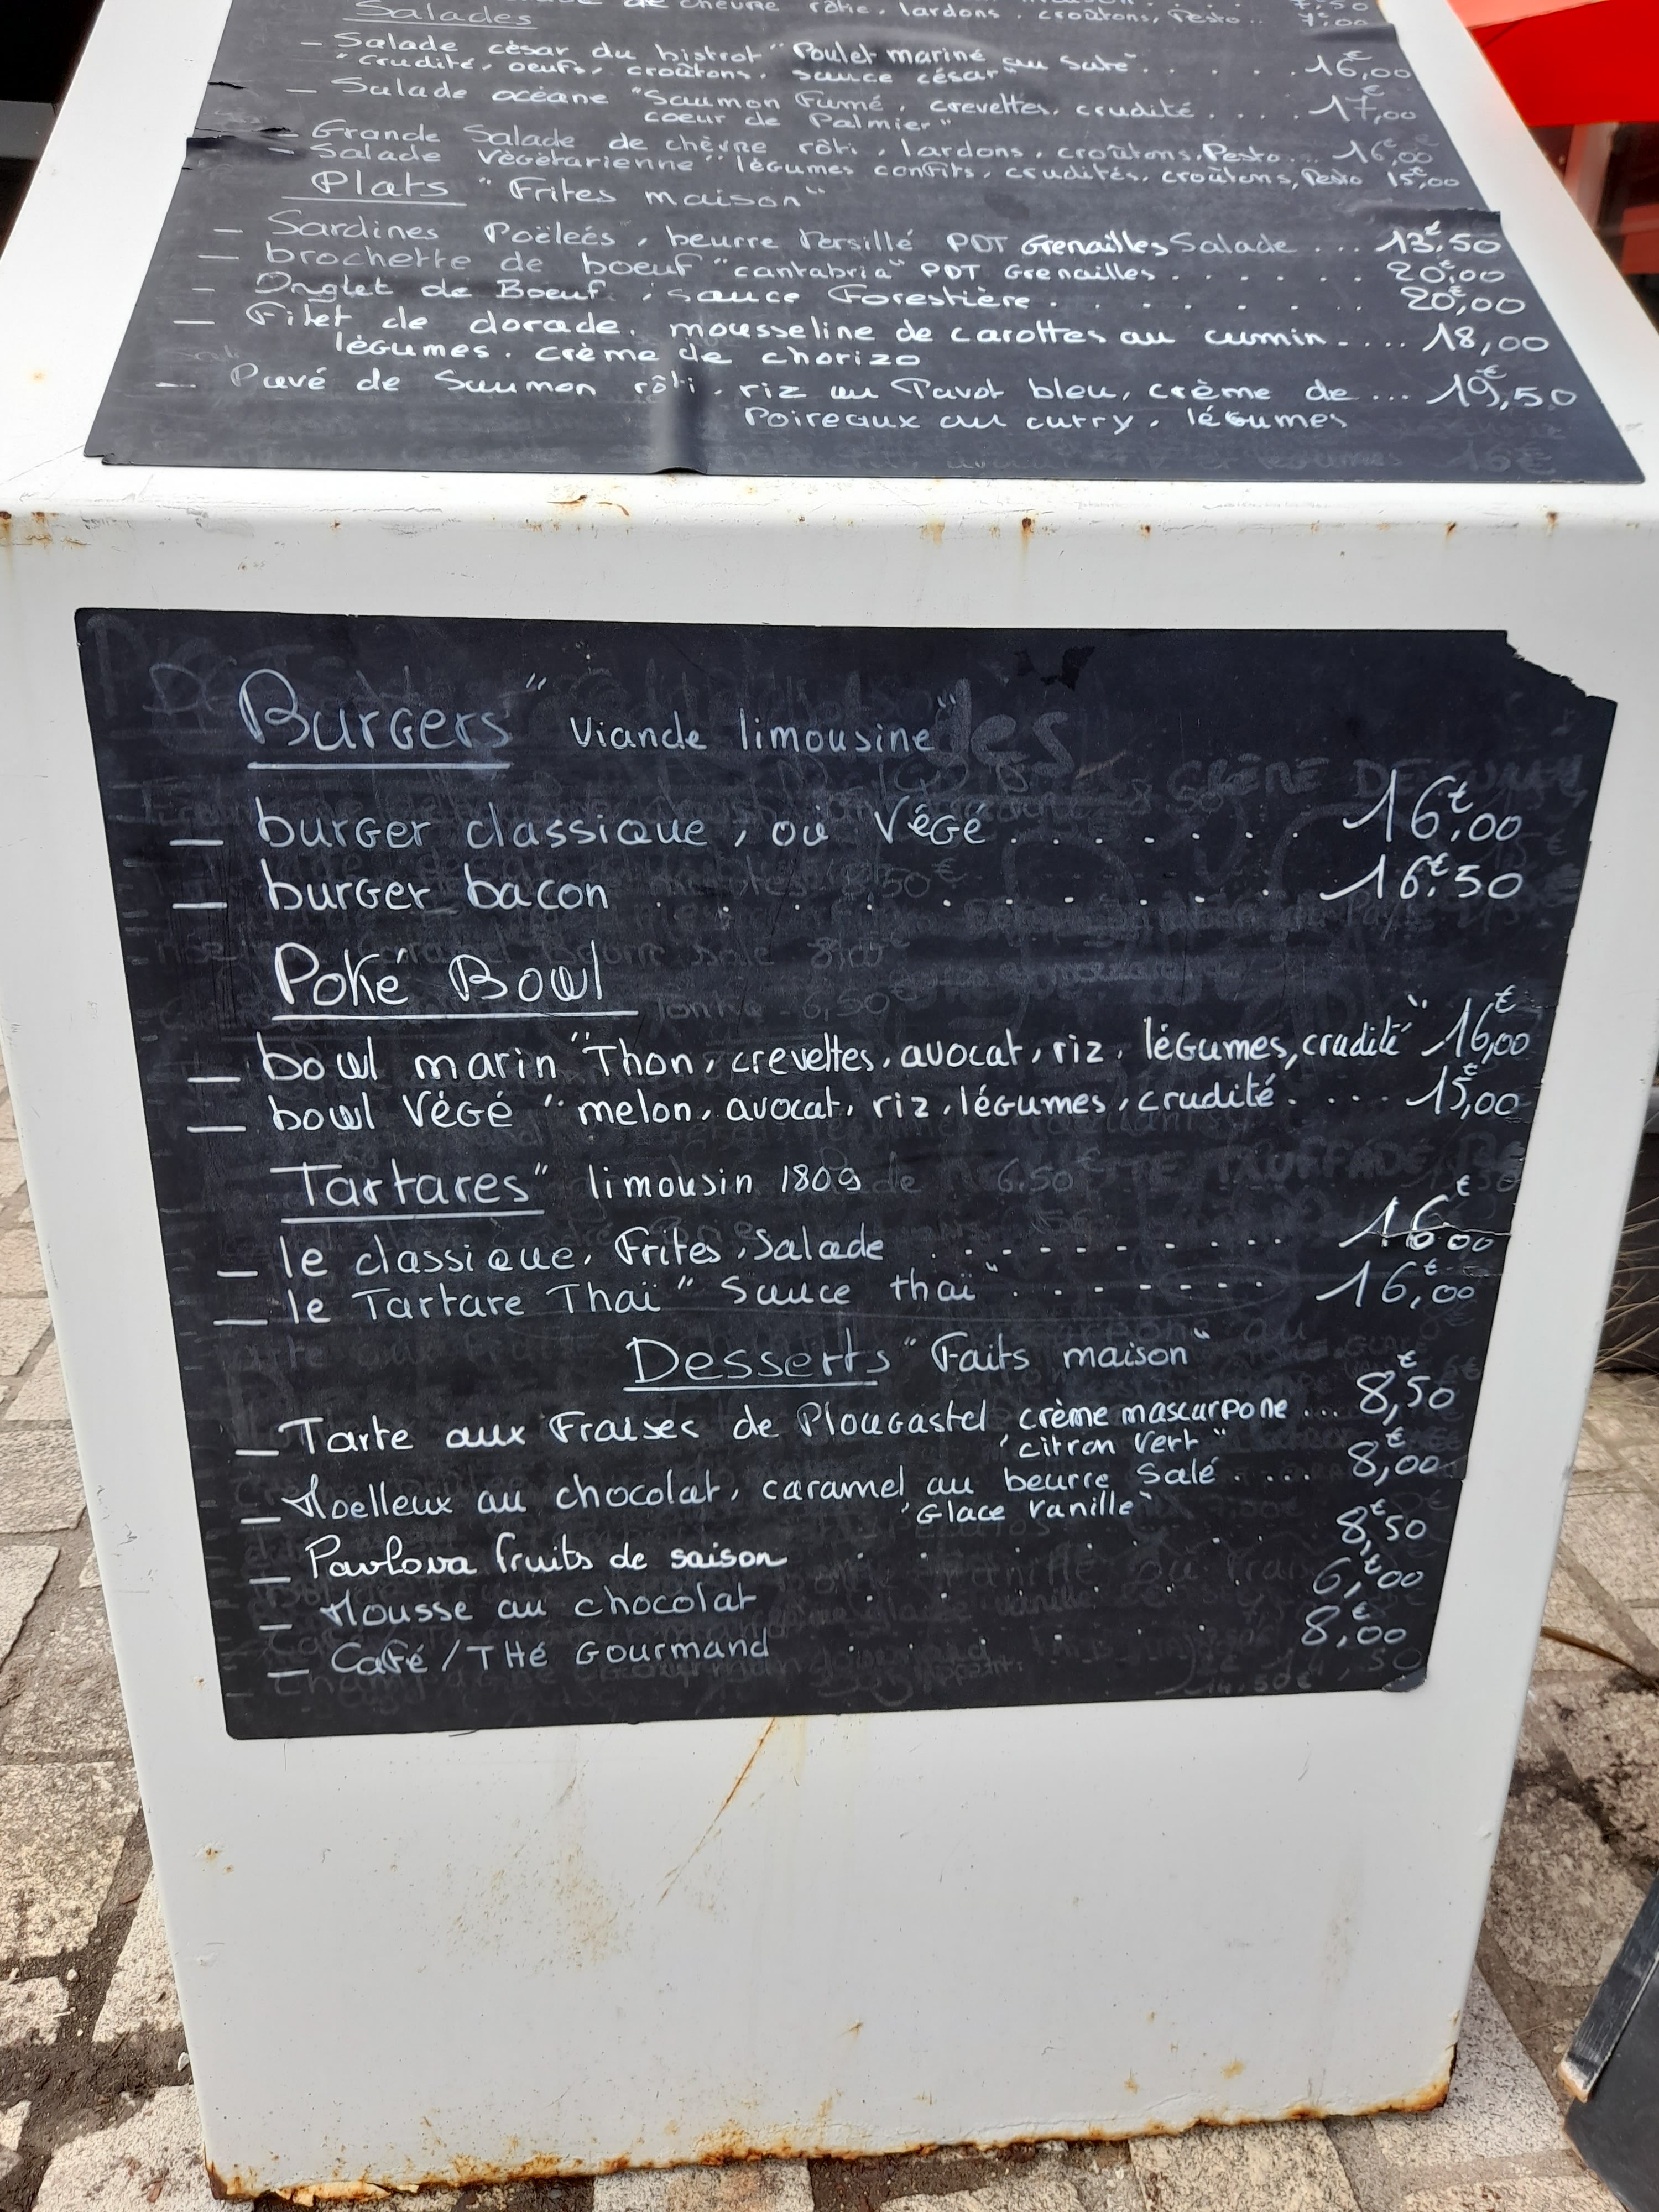 de chèvre rôtie, lardons, croûtons, Pesto.. 7€,50
Salades 7€,00
– Salade cèsar du bistrot "Poulet mariné au saté" . . . . . 16€,00
"crudité, oeufs, croûtons, sauce césar"
– Salade océane "Saumon Fumé, crevettes, crudité . . . . 17€,00
coeur de Palmier"
– Grande Salade de chèvre rôti, lardons, croûtons, Pesto... 16€,00
– Salade Végétarienne "légumes confits, crudités, croûtons, Pesto 15€,00
Plats "Frites maison"
– Sardines Poëleés, beurre Persillé PDT Grenailles Salade ... 13€,50
– brochette de boeuf "cantabria" PDT Grenailles . . . . . . 20€,00
– Onglet de Boeuf, sauce Forestière . . . . . . . . 20€,00
– Filet de dorade, mousseline de carottes au cumin.... 18,00
légumes, crème de chorizo
– Pavé de Saumon rôti, riz au Pavot bleu, crème de ... 19€,50
Poireaux au curry, légumes
Burgers "Viande limousine"
– burger classique, où Végé . . . . . . . 16€,00
– burger bacon . . . . . . . . . . . 16€,50
Poké Bowl
– bowl marin "Thon, crevettes, avocat, riz, légumes, crudité" 16€,00
– bowl Végé "melon, avocat, riz, légumes, crudité. ... 15€,00
Tartares" limousin 180g
– le classique, Frites, Salade . . . . . . . . . . . 16€,00
– le Tartare Thaï "Sauce thaï" . . . . . . . . 16€,00
Desserts "Faits maison"
– Tarte aux Fraises de Plougastel crème mascarpone ... 8€,50
"citron vert"
– Moelleux au chocolat, caramel au beurre Salé . ... 8€,00
"Glace vanille"
– Pavlova fruits de saison . . . . . . . 8€,50
– Mousse au chocolat . . . . . . . 6€,00
– Café/THé Gourmand . . . . . . . 8€,00